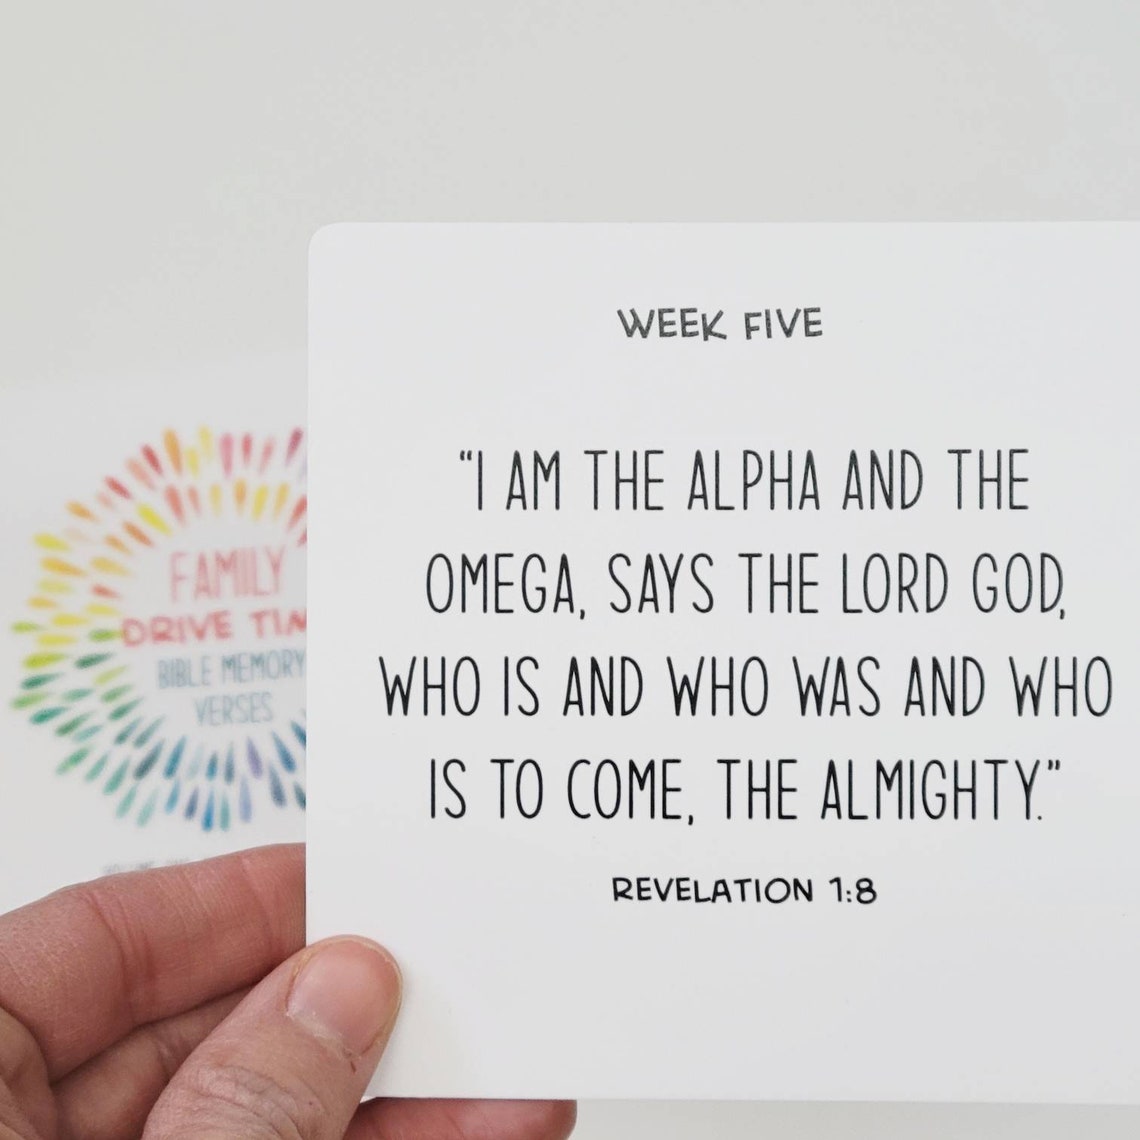 WEEK FIVE
"I AM THE ALPHA AND THE
OMEGA, SAYS THE LORD GOD,
WHO IS AND WHO WAS AND WHO
IS TO COME, THE ALMIGHTY."
REVELATION 1:8
FAMILY
DRIVE
BIBLE MEMORY
VERSES